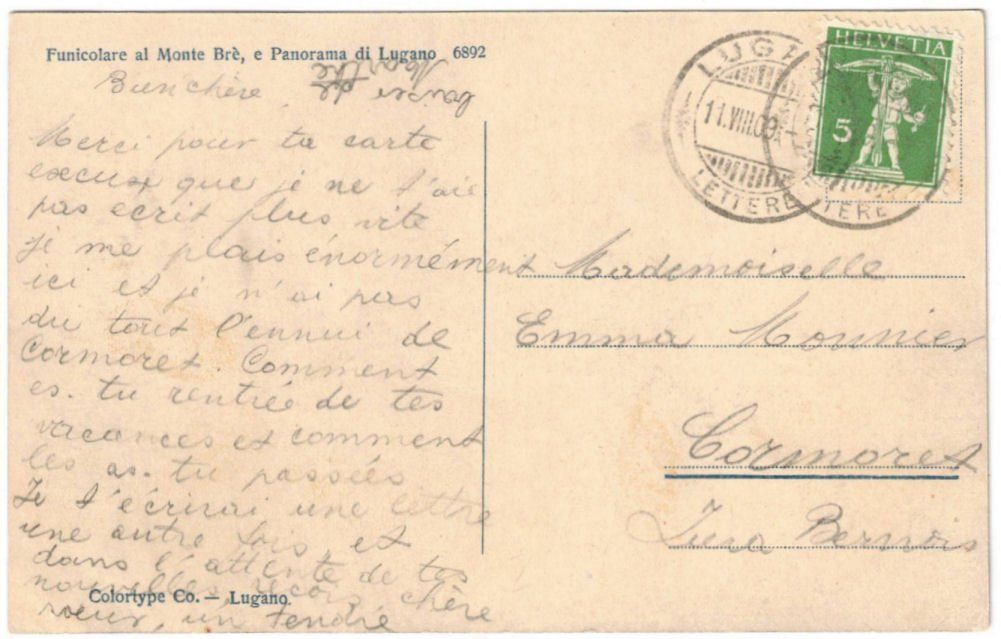 Funicolare al Monte Brè, e Panorama di Lugano 6892
Bien chère
Merci pour ta carte
excuse que je ne t'aie
pas ecrit plus vite
Je me plais énormément
ici et je n'ai pas
du tout l'ennui de
Cormoret. Comment
es-tu rentrée de tes
vacances et comment
les as-tu passées
Je t'écrirai une lettre
une autre fois et
dans l'attente de tes
nouvelles, reçois, chère
soeur, un tendre
baiser de
Marthe
Colortype Co. — Lugano.
LUGA
11.VIII.09
LETTERE
TERE
HELVETIA
5
Mademoiselle
Emma Monnier
Cormoret
Jura Bernois